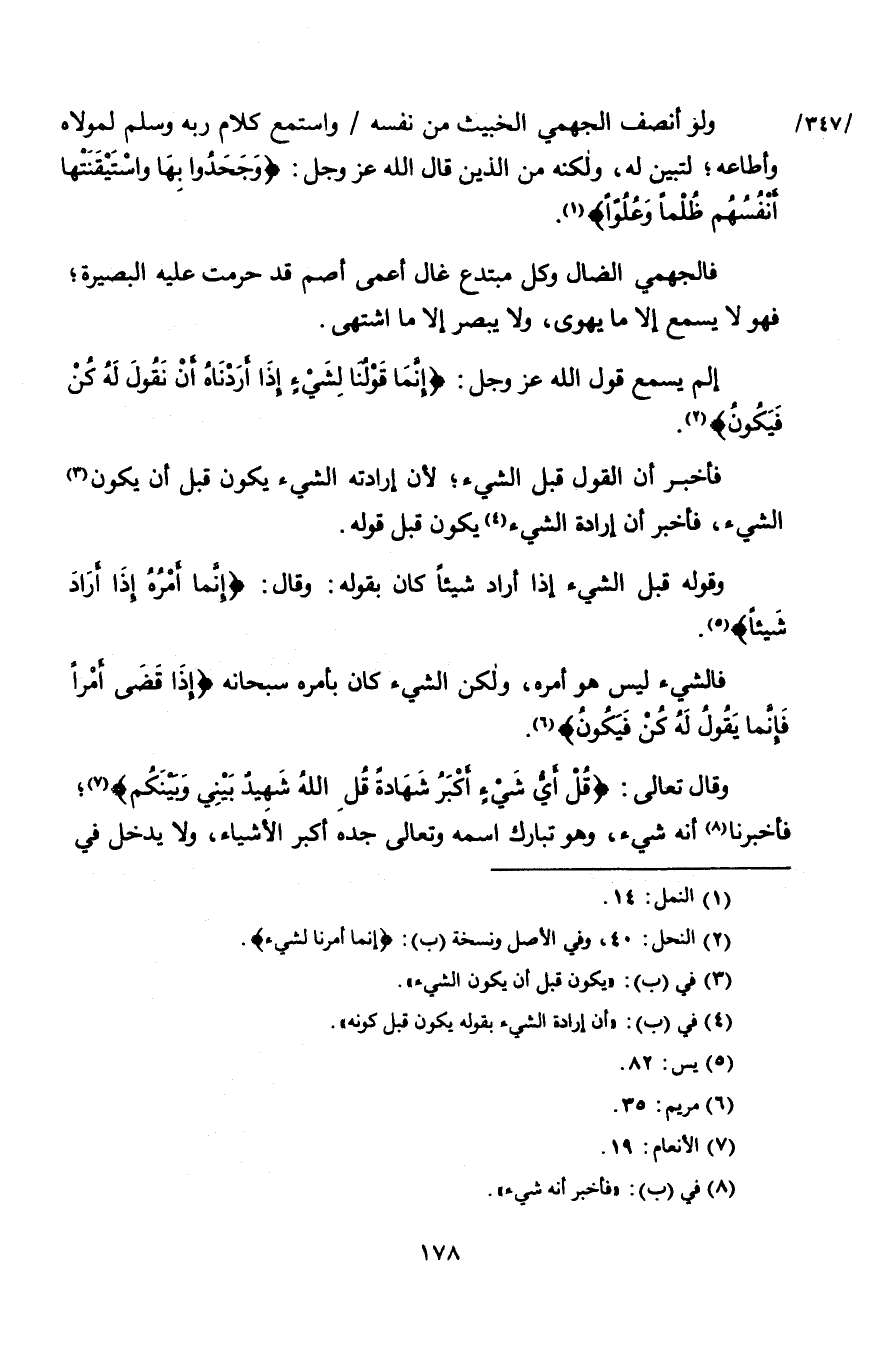 /٣٤٧/ ولو أنصف الجهمي الخبيث من نفسه / واستمع كلام ربه وسلم لمولاه
وأطاعه؛ لتبين له، ولكنه من الذين قال الله عز وجل: ﴿وَجَحَدُوا بِهَا واسْتَيْقَنَتْها
أَنْفُسُهُم ظُلْماً وَعُلُوّاً﴾(١).
فالجهمي الضال وكل مبتدع غال أعمى أصم قد حرمت عليه البصيرة؛
فهو لا يسمع إلا ما يهوى، ولا يبصر إلا ما اشتهى.
إلم يسمع قول الله عز وجل: ﴿إِنَّمَا قَوْلُنَا لِشَيْءٍ إِذَا أَرَدْنَاهُ أَنْ نَقُولَ لَهُ كُنْ
فَيَكُونُ﴾(٢).
فأخبر أن القول قبل الشيء؛ لأن إرادته الشيء يكون قبل أن يكون(٣)
الشيء، فأخبر أن إرادة الشيء(٤) يكون قبل قوله.
وقوله قبل الشيء إذا أراد شيئاً كان بقوله: وقال: ﴿إِنَّما أَمْرُهُ إِذَا أَرَادَ
شَيئاً﴾(٥).
فالشيء ليس هو أمره، ولكن الشيء كان بأمره سبحانه ﴿إِذَا قَضَى أَمْراً
فَإِنَّما يَقُولُ لَهُ كُنْ فَيَكُونُ﴾(٦).
وقال تعالى: ﴿قُلْ أَيُّ شَيْءٍ أَكْبَرُ شَهَادةً قُلِ اللهُ شَهِيدٌ بَيْنِي وَبَيْنَكُم﴾(٧)؛
فأخبرنا(٨) أنه شيء، وهو تبارك اسمه وتعالى جده أكبر الأشياء، ولا يدخل في
(١) النمل: ١٤.
(٢) النحل: ٤٠، وفي الأصل ونسخة (ب): ﴿إنما أمرنا لشيء﴾.
(٣) في (ب): «يكون قبل أن يكون الشيء».
(٤) في (ب): «أن إرادة الشيء بقوله يكون قبل كونه».
(٥) يس: ٨٢.
(٦) مريم: ٣٥.
(٧) الأنعام: ١٩.
(٨) في (ب): «فأخبر أنه شيء».
١٧٨